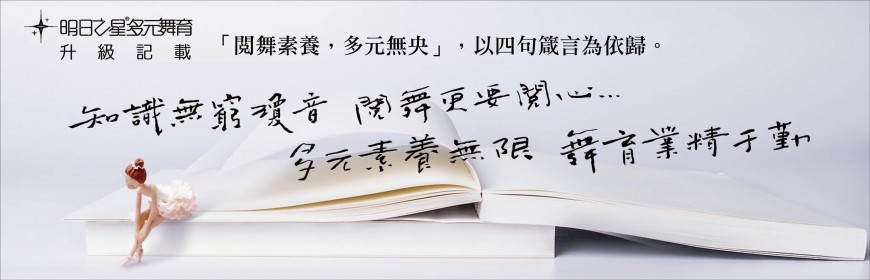 明日之星®多元舞育
升級記載
「閱舞素養，多元無央」，以四句箴言為依歸。
知識無窮瓊音 閱舞更要閱心...
多元素養無限 舞育業精于勤